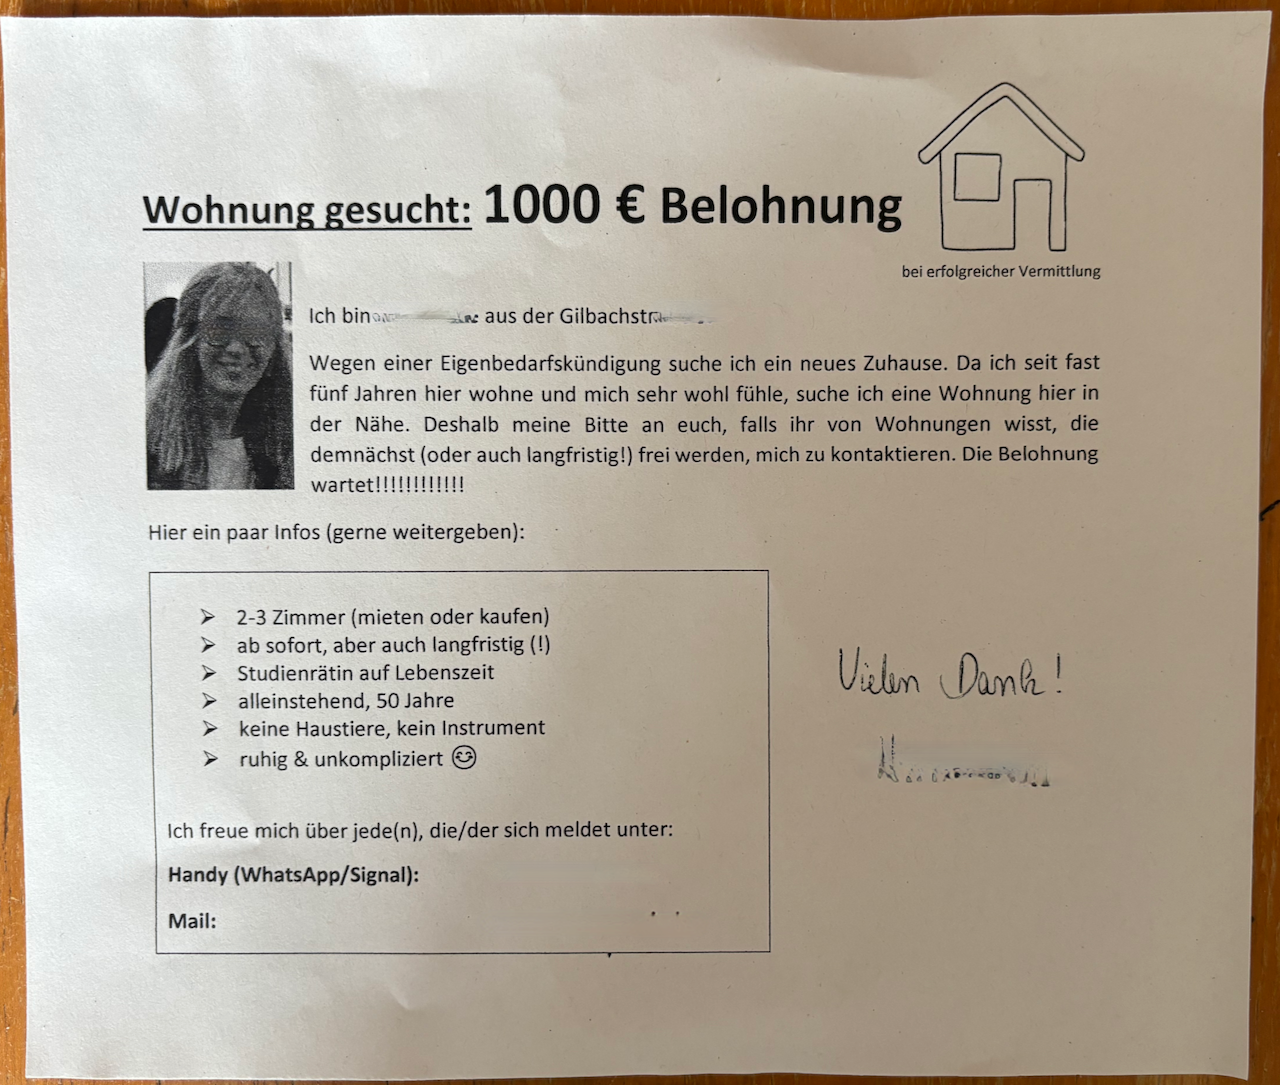 Wohnung gesucht: 1000 € Belohnung
bei erfolgreicher Vermittlung
Ich bin aus der Gilbachstr
Wegen einer Eigenbedarfskündigung suche ich ein neues Zuhause. Da ich seit fast
fünf Jahren hier wohne und mich sehr wohl fühle, suche ich eine Wohnung hier in
der Nähe. Deshalb meine Bitte an euch, falls ihr von Wohnungen wisst, die
demnächst (oder auch langfristig!) frei werden, mich zu kontaktieren. Die Belohnung
wartet!!!!!!!!!!!!
Hier ein paar Infos (gerne weitergeben):
➢ 2-3 Zimmer (mieten oder kaufen)
➢ ab sofort, aber auch langfristig (!)
➢ Studienrätin auf Lebenszeit
➢ alleinstehend, 50 Jahre
➢ keine Haustiere, kein Instrument
➢ ruhig & unkompliziert 😊
Vielen Dank!
Ich freue mich über jede(n), die/der sich meldet unter:
Handy (WhatsApp/Signal):
Mail: